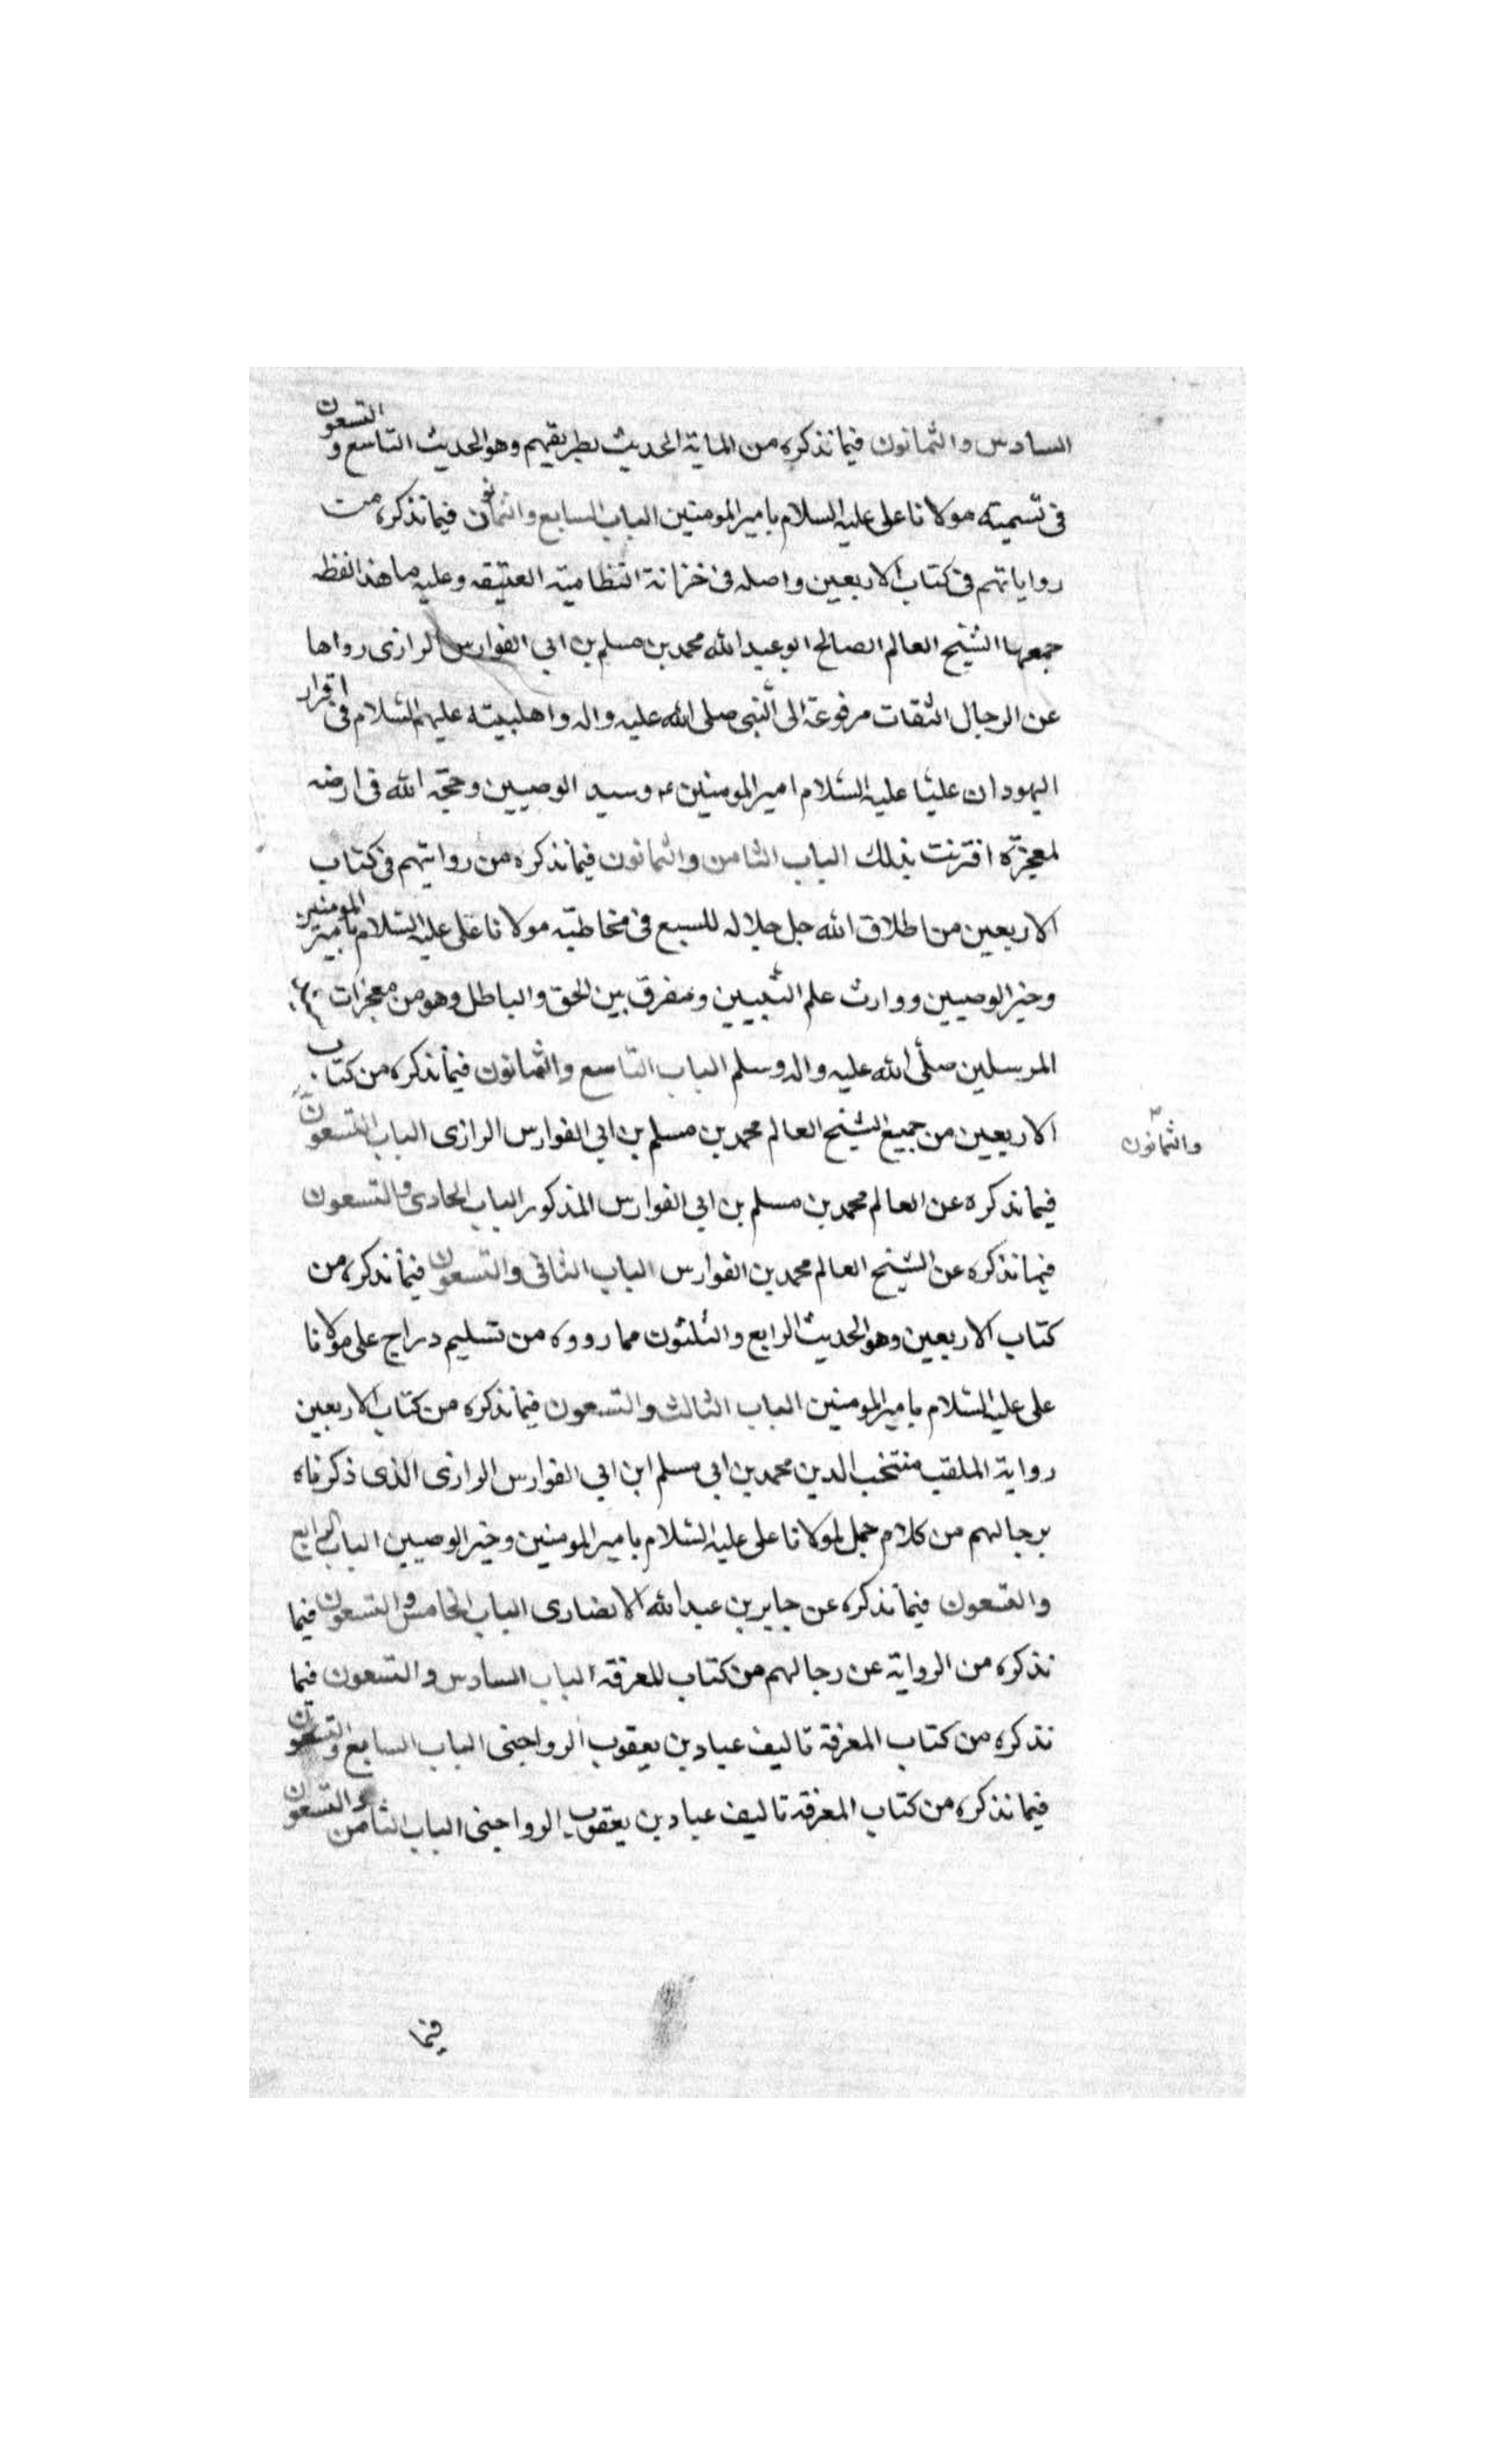 السادس والثمانون فيما نذكره من الماية الحديث بطريقهم وهو الحديث التاسع و التسعون
فى تسميته مولانا على عليه السلام بامير المومنين الباب السابع والثمانون فيما نذكره من
رواياتهم فى كتاب الاربعين واصله فى خزانة النظامية العتيقه وعليه ما هذا لفظه
جمعها الشيخ العالم الصالح ابو عبد الله محمد بن مسلم بن ابى الفوارس الرازى رواها
عن الرجال الثقات مرفوعة الى النبى صلى الله عليه واله واهلبيته عليهم السلام فى اقرار
اليهود ان عليّا عليه السّلام امير المومنين ء وسيد الوصيين وحجّة الله فى ارضه
لمعجزة اقترنت بذلك الباب الثامن والثمانون فيما نذكره من روايتهم فى كتاب
الاربعين من اطلاق الله جل جلاله للسبع فى مخاطبته مولانا على عليه السّلام بامير المومنين
وخير الوصيين ووارث علم النّبيين ومفرق بين الحق والباطل وهو من معجزات
المرسلين صلّى الله عليه واله وسلم الباب التاسع والثمانون فيما نذكره من كتاب
الاربعين من جميع الشيخ العالم محمد بن مسلم بن ابى الفوارس الرازى الباب التسعون
والثمانون
فيما نذكره عن العالم محمد بن مسلم بن ابى الفوارس المذكور الباب الحادى والتسعون
فيما نذكره عن الشيخ العالم محمد بن الفوارس الباب الثانى والتسعون فيما نذكره من
كتاب الاربعين وهو الحديث الرابع والثلثون مما رووه من تسليم دراج على مولانا
على عليه السّلام بامير المومنين الباب الثالث والتسعون فيما نذكره من كتاب الاربعين
رواية الملقب منتخب الدين محمد بن ابى مسلم ابن ابى الفوارس الرازى الذى ذكرناه
برجالهم من كلام جمل لمولانا على عليه السّلام بامير المومنين وخير الوصيين الباب الرابع
والتسعون فيما نذكره عن جابر بن عبد الله الانصارى الباب الخامس والتسعون فيما
نذكره من الرواية عن رجالهم من كتاب المعرفة الباب السادس والتسعون فيما
نذكره من كتاب المعرفة تاليف عباد بن يعقوب الرواجنى الباب السابع والتسعون
فيما نذكره من كتاب المعرفة تاليف عباد بن يعقوب الرواجنى الباب الثامن والتسعون
فيما